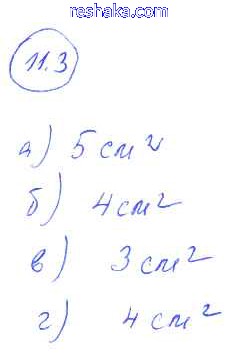 reshaka.com
11.3
а) 5 см²
б) 4 см²
в) 3 см²
г) 4 см²